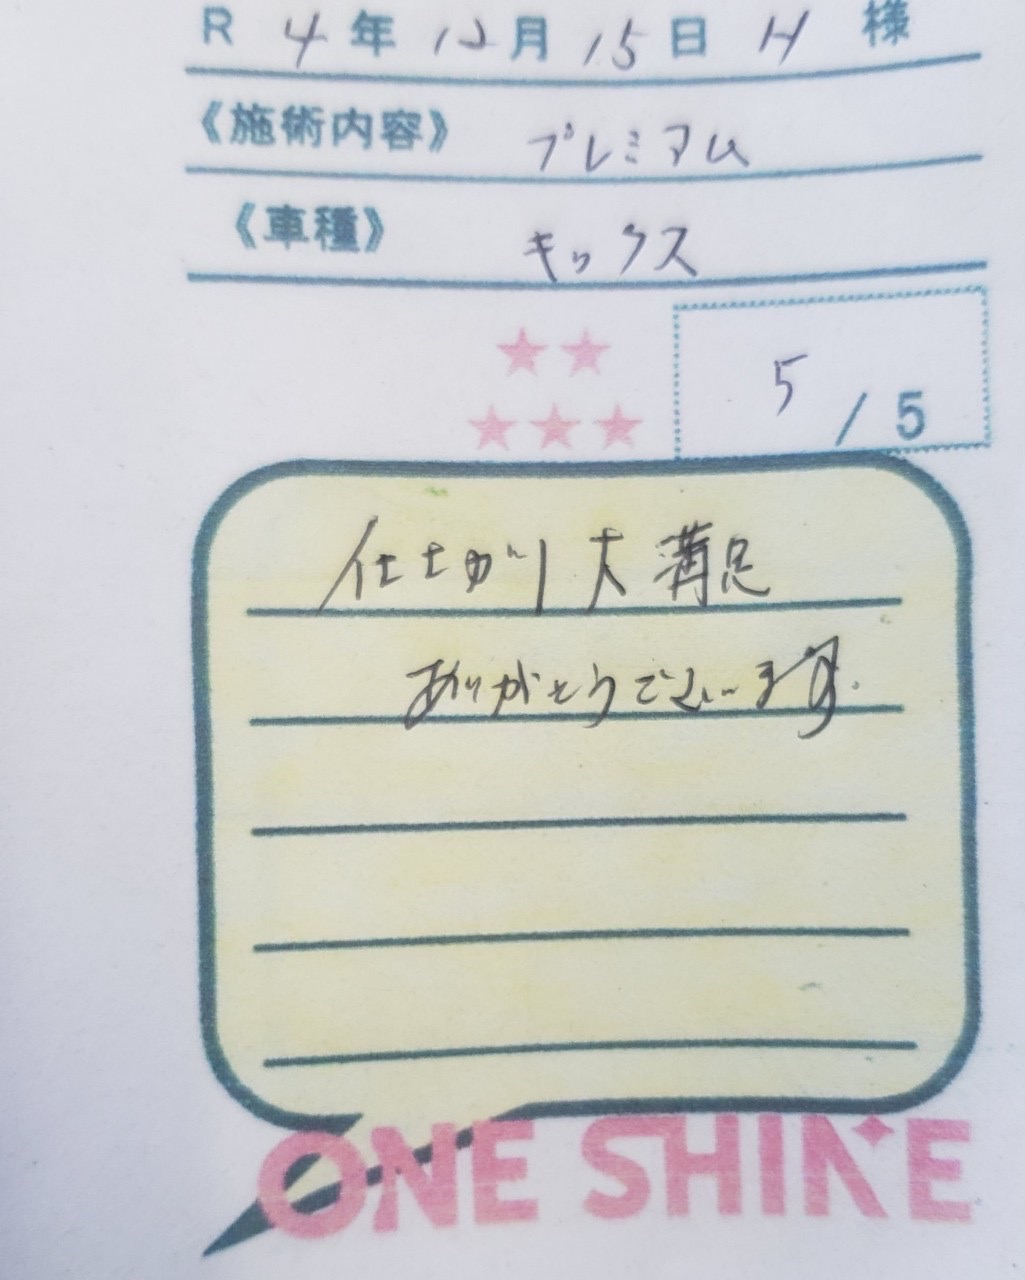 R 4年 12月 15日 H 様
《施術内容》 プレミアム
《車種》 キックス
★★
★★★
5 / 5
仕上がり大満足
ありがとうございます。
ONE SHINE